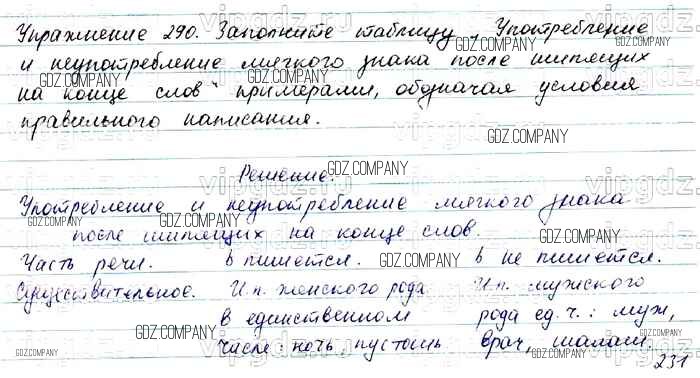 Упражнение 290. Заполните таблицу „Употребление
и неупотребление мягкого знака после шипящих
на конце слов" примерами, обозначая условия
правильного написания.
Решение.
Употребление и неупотребление мягкого знака
после шипящих на конце слов.
Часть речи. ь пишется. ь не пишется.
Существительное. И.п. женского рода И.п. мужского
в единственном рода ед. ч.: муж,
числе: ночь, пустошь врач, шалаш.
231
GDZ.COMPANY
vipgdz.ru